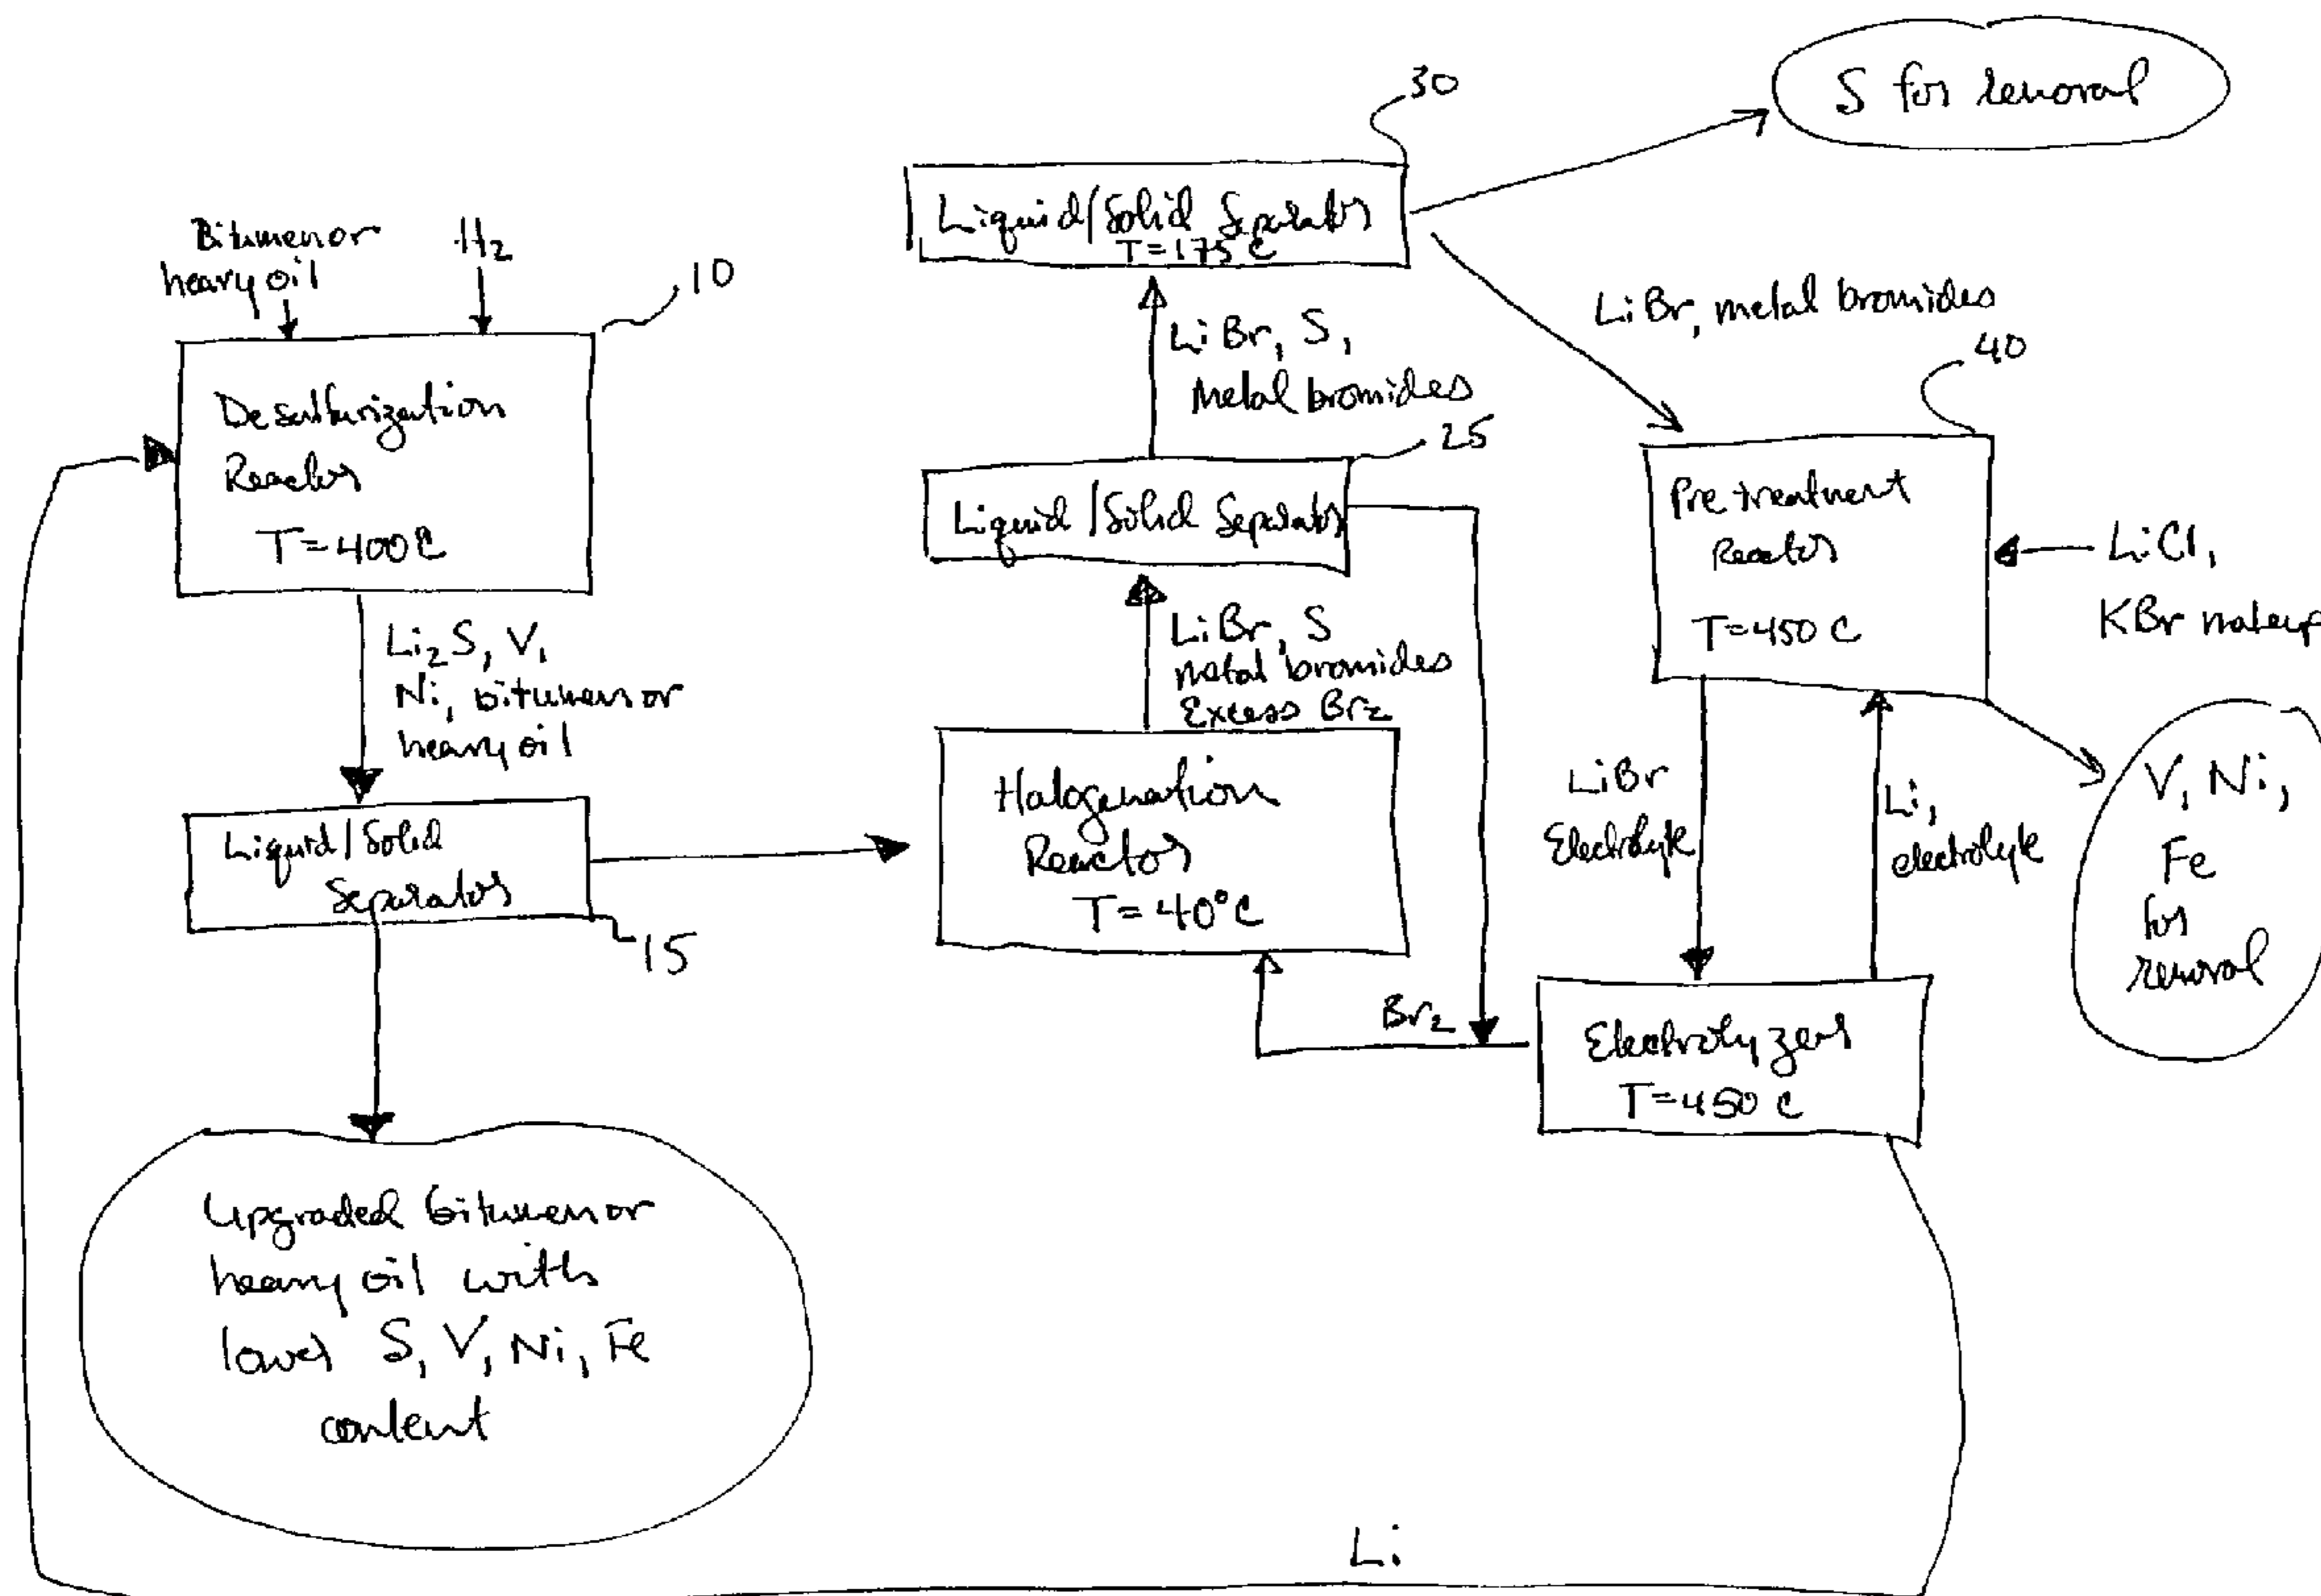 Bitumen or
heavy oil
H2
10
Desulfurization
Reactor
T=400C
Li2S, V,
Ni, bitumen or
heavy oil
Liquid/Solid
Separator
15
Upgraded bitumen or
heavy oil with
lower S, V, Ni, Fe
content
30
Liquid/Solid Separator
T=175 C
S for removal
LiBr, S,
Metal bromides
25
Liquid/Solid Separator
LiBr, S
metal bromides
Excess Br2
Halogenation
Reactor
T=40°C
Br2
LiBr, metal bromides
40
Pretreatment
Reactor
T=450 C
LiCl,
KBr makeup
LiBr
Electrolyte
Li,
electrolyte
V, Ni,
Fe
for
removal
Electrolyzer
T=450 C
Li